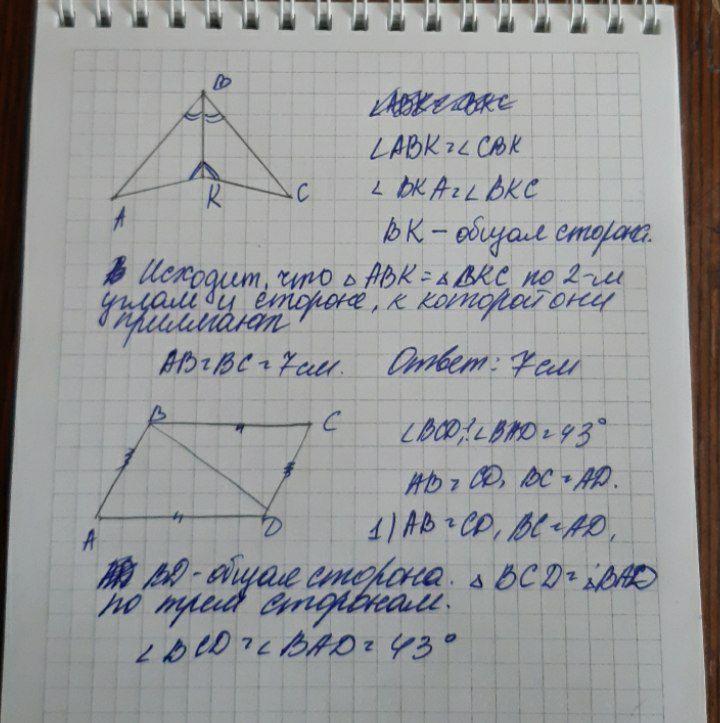 B
A
K
C
∠ABK = ∠CBK
∠BKA = ∠BKC
BK – общая сторона.
Исходит, что △ABK = △BKC по 2-м
углам и стороне, к которой они
прилягают
AB = BC = 7 см. Ответ: 7 см
B
C
A
D
∠BCD; ∠BAD = 43°
AB = CD, BC = AD.
1) AB = CD, BC = AD,
BD - общая сторона. △BCD = △BAD
по трем сторонам.
∠BCD = ∠BAD = 43°